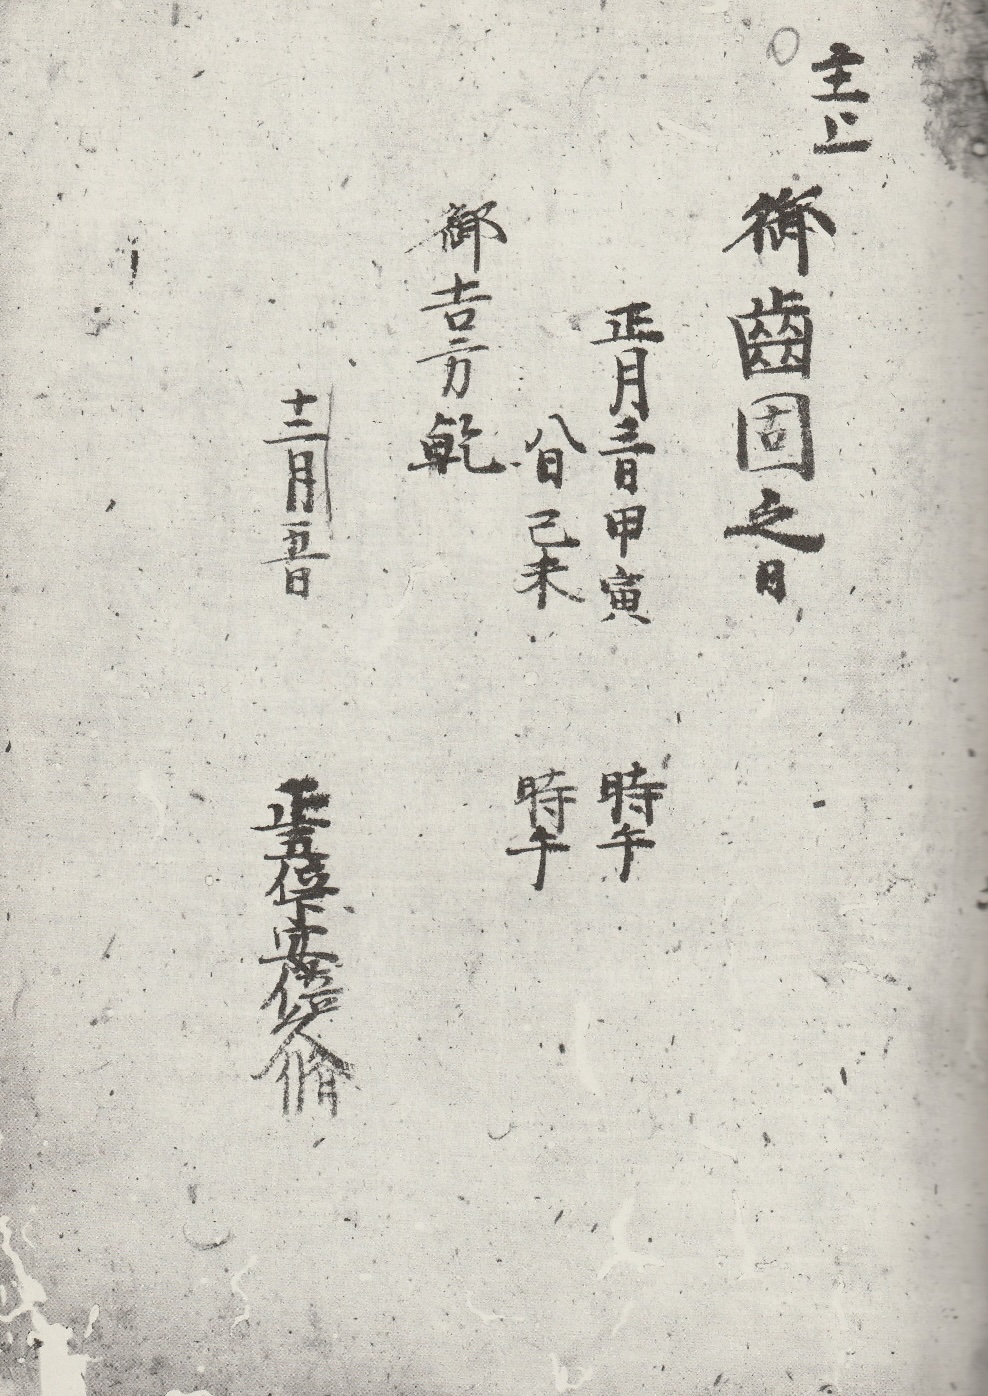 主上
御齒固之日
正月三日甲寅 時午
八日己未 時午
御吉方乾
十二月五日 正五位下安倍久脩